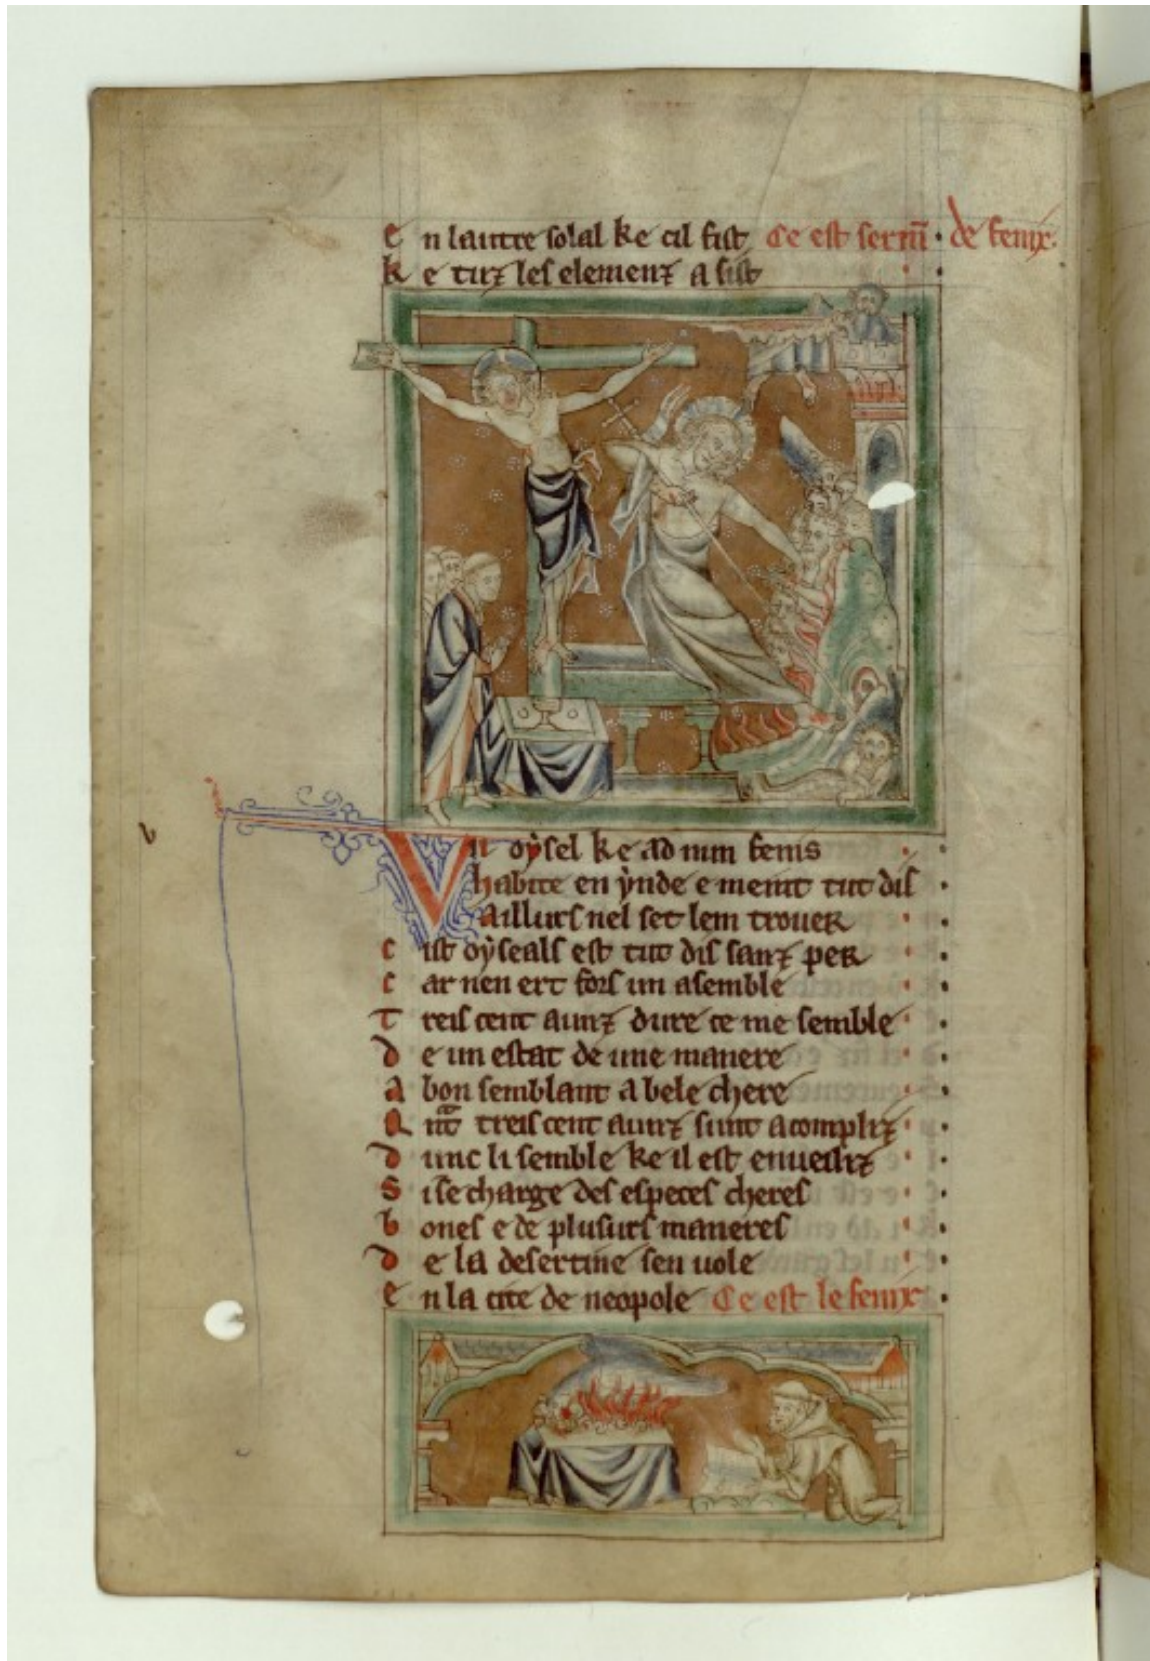 e n lautre solal ke cil fist Ce est serm̄ de fenix.
k e tuz les elemenz a sist
Vn oẏsel ke ad nun fenis
habite en ẏnde e meint tut dis
Aillurs nel set lem trouer
c ist oẏseals est tut dis sanz per
c ar nen ert fors un asemble
T reis cent aunz dure ce me semble
d e un estat de une manere
a bon semblant a bele chere
Q nt̄ treis cent aunz sunt acompliz
d unc li semble ke il est enueilliz
S i se charge des especes cheres
b ones e de plusurs maneres
d e la desertine sen uole
e n la cite de neopole Ce est le fenix